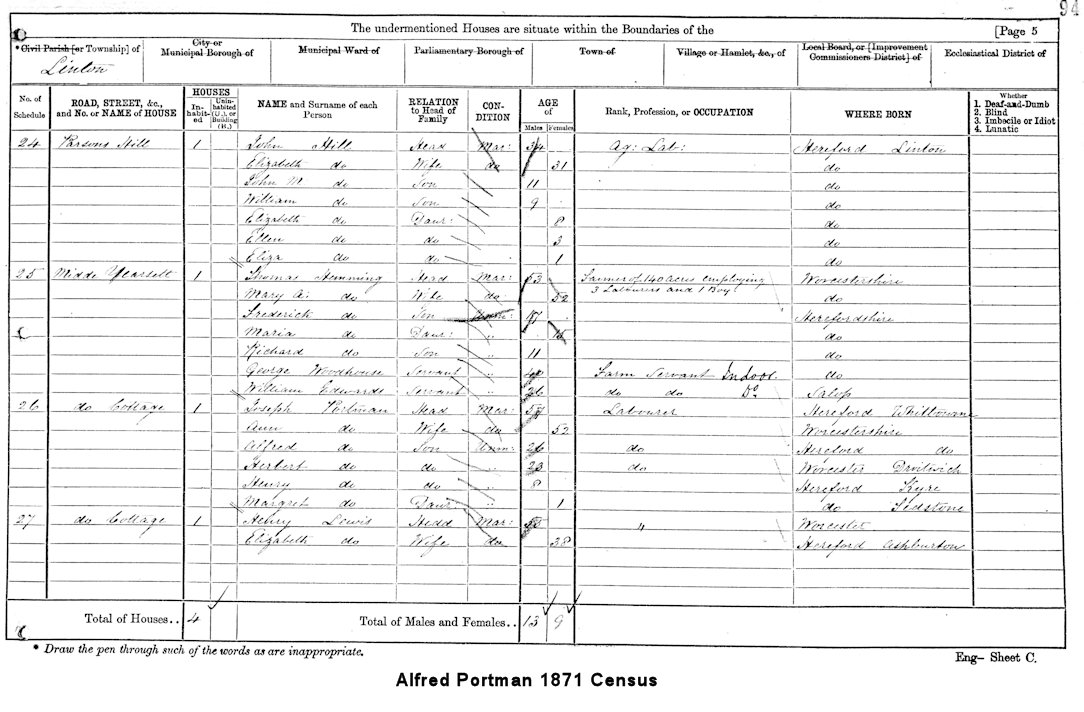 94
The undermentioned Houses are situate within the Boundaries of the [Page 5
* Civil Parish [or Township] of City or Municipal Borough of Municipal Ward of Parliamentary Borough of Town of Village or Hamlet, &c., of Local Board, or [Improvement Commissioners District] of Ecclesiastical District of
Linton
No. of Schedule ROAD, STREET, &c., and No. or NAME of HOUSE HOUSES In-habit-ed Unin-habited (U.), or Building (B.) NAME and Surname of each Person RELATION to Head of Family CON-DITION AGE of Males Females Rank, Profession, or OCCUPATION WHERE BORN Whether 1. Deaf-and-Dumb 2. Blind 3. Imbecile or Idiot 4. Lunatic
24 Parsons Hill 1 John Hill Head Mar: 34 Ag: Lab: Hereford Linton
Elizabeth do Wife do 31 do
John M do Son 11 do
William do Son 9 do
Elizabeth do Daur: 8 do
Ellen do do 3 do
Eliza do do 1 do
25 Midde Yearsett 1 Thomas Henning Head Mar: 53 Farmer of 140 acres employing 3 Labourers and 1 Boy Worcestershire
Mary A: do Wife do 52 do
Frederick do Son Unm: 17 Herefordshire
Maria do Daur: " do
Richard do Son " 11 do
George Woodhouse Servant " Farm Servant Indoor do
William Edwards Servant " 26 do do Do Salop
26 do Cottage 1 Joseph Portman Head Mar: 57 Labourer Hereford Whitbourne
Ann do Wife do 52 Worcestershire
Alfred do Son Unm: 26 do Hereford do
Herbert do do " 23 do Worcester Droitwich
Henry do do " 8 Hereford Kyre
Margret do Daur " 1 do Tedstone
27 do Cottage 1 Henry Lewis Head Mar: " Worcester
Elizabeth do Wife do 38 Hereford Ashburton
Total of Houses.. 4 Total of Males and Females.. 13 9
* Draw the pen through such of the words as are inappropriate.
Eng– Sheet C.
Alfred Portman 1871 Census